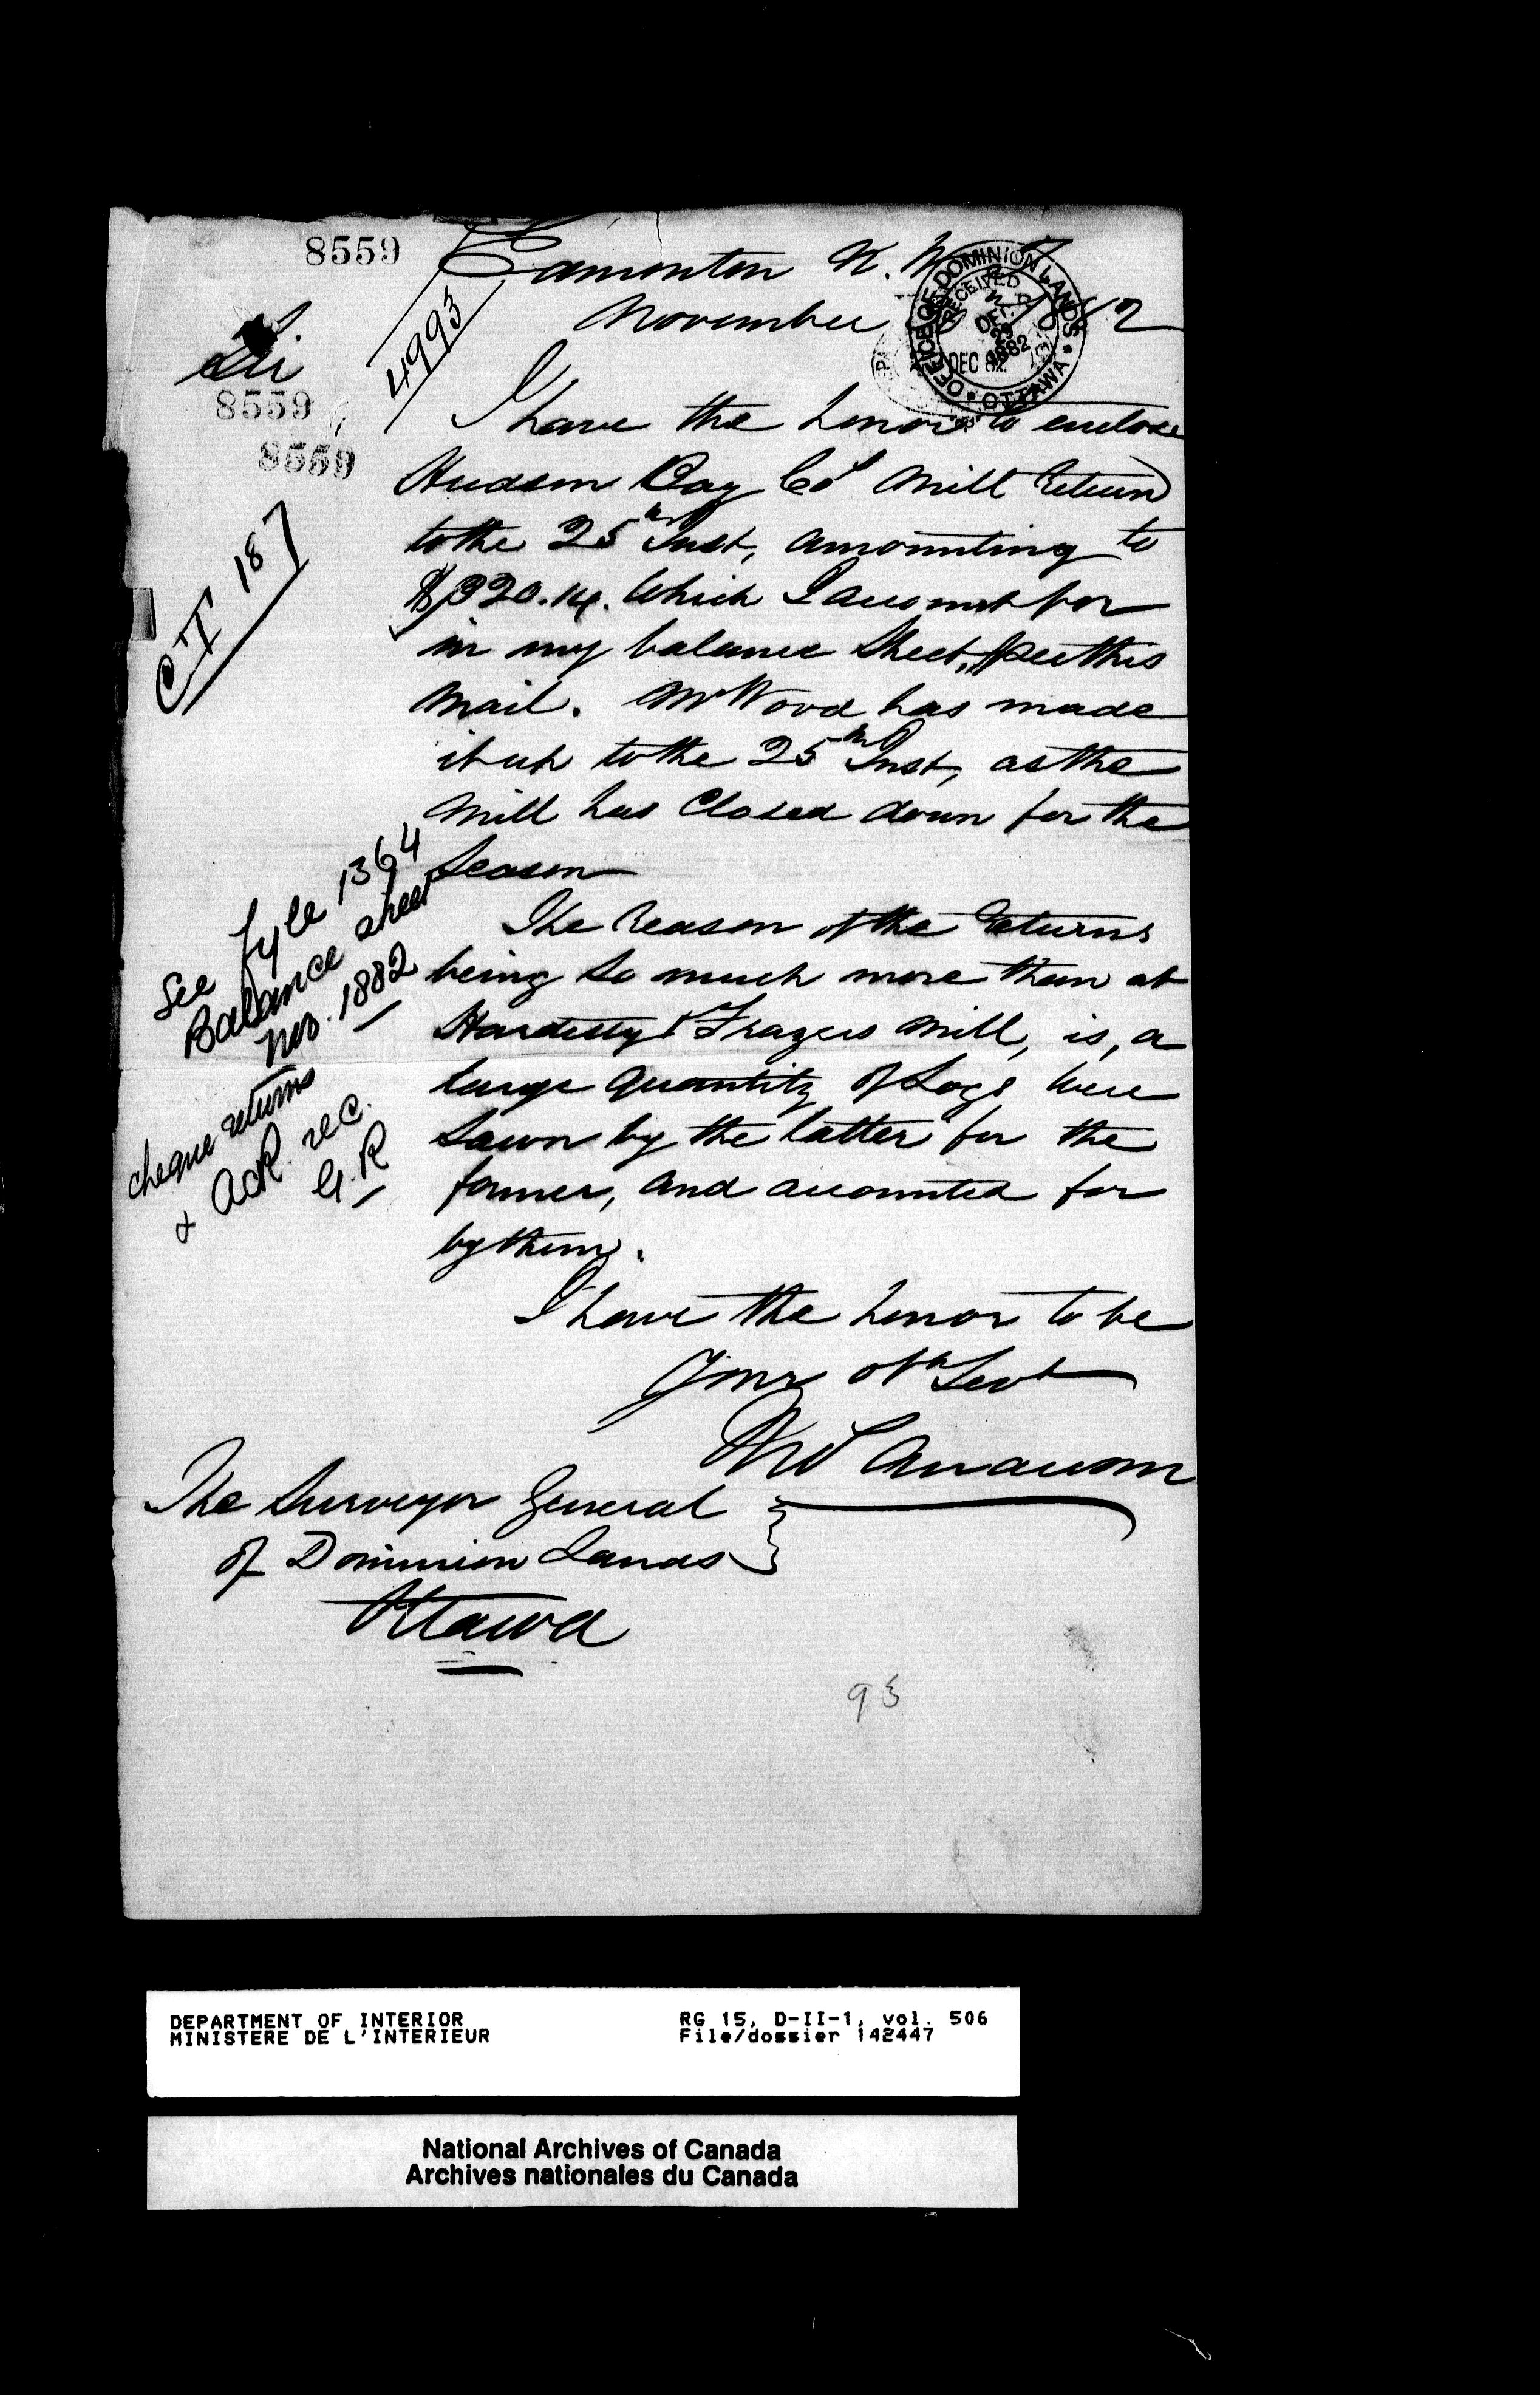 8559
Edmonton N. W. T
4993
November 1882
OFFICE OF DOMINION LANDS
RECEIVED
DEC
29
1882
OTTAWA
DEC 82
Sir
8559
8559
I have the honor to enclose
Hudson Bay Co's Mill Return
to the 25th Inst, amounting to
$320.14. Which I account for
in my balance Sheet, per this
Mail. Mr Wood has made
it up to the 25th Inst, as the
Mill has Closed down for the
Season
CT 187
The Reason of the Returns
being so much more than at
Hardisty & Frazers Mill, is, a
large Quantity of Logs were
Sawn by the latter for the
former, and accounted for
by them.
See fyle 1364
Balance sheet
Nov. 1882
cheque returns
& Ack. rec.
G. R
I have the honor to be
Your Obt Servt
Thos Anderson
The Surveyor General
of Dominion Lands
Ottawa
93
DEPARTMENT OF INTERIOR RG 15, D-II-1, vol. 506
MINISTERE DE L'INTERIEUR File/dossier 142447
National Archives of Canada
Archives nationales du Canada